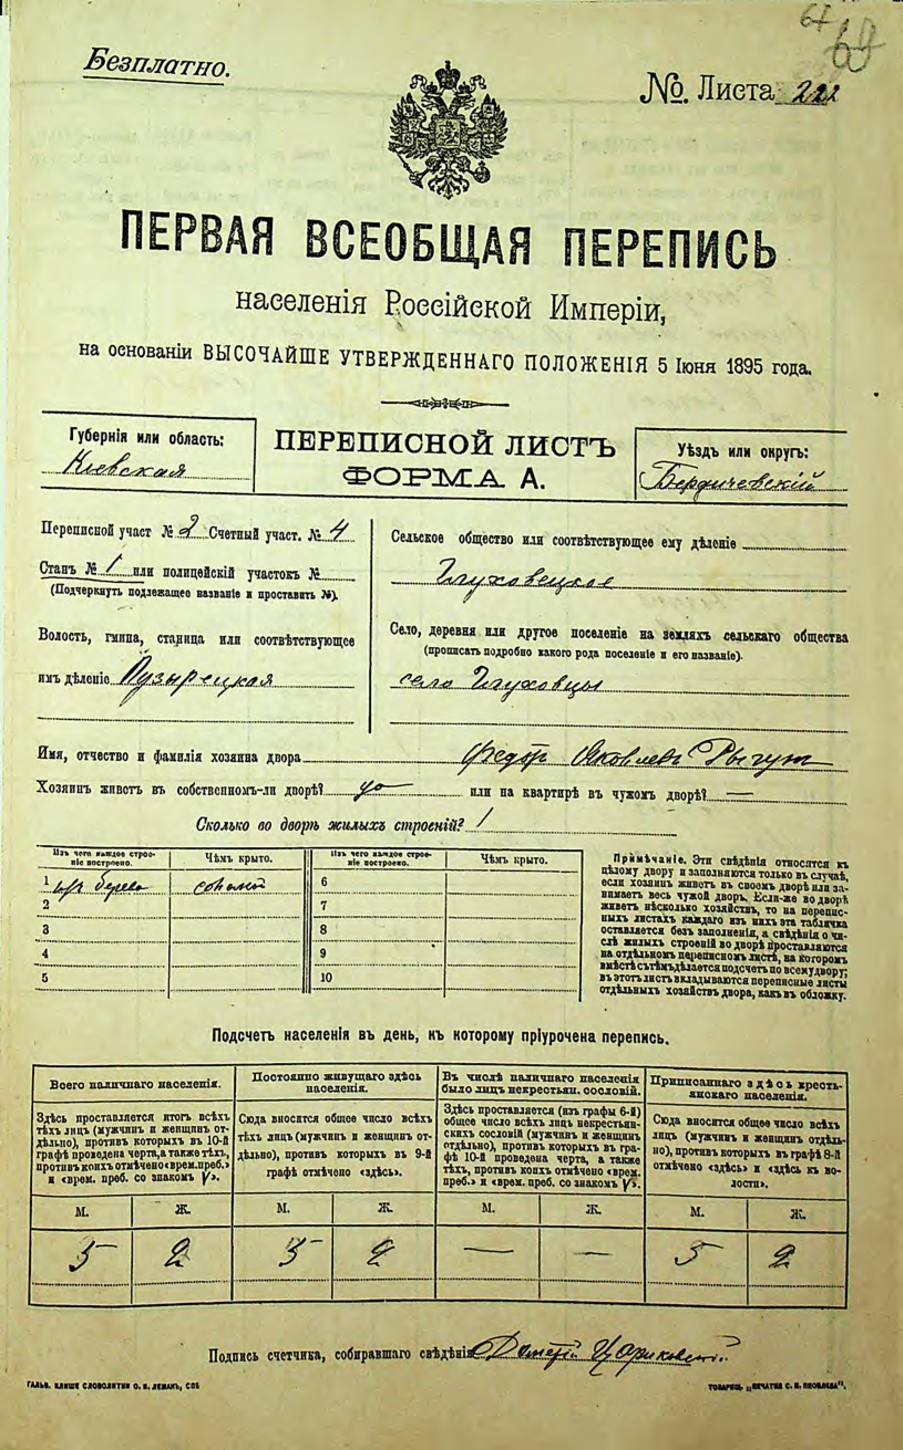 67
Безплатно.
№ Листа 222
ПЕРВАЯ ВСЕОБЩАЯ ПЕРЕПИСЬ
населенія Россійской Имперіи,
на основаніи ВЫСОЧАЙШЕ УТВЕРЖДЕННАГО ПОЛОЖЕНІЯ 5 Іюня 1895 года.
Губернія или область:
Кіевская
ПЕРЕПИСНОЙ ЛИСТЪ
ФОРМА А.
Уѣздъ или округъ:
Бердичевскій
Переписной участ № 2 Счетный участ. № 4
Станъ № 1 или полицейскій участокъ №
(Подчеркнуть подлежащее названіе и проставить №).
Волость, гмина, станица или соотвѣтствующее
имъ дѣленіе Пузырецкая
Сельское общество или соотвѣтствующее ему дѣленіе
Глуховецкое
Село, деревня или другое поселеніе на земляхъ сельскаго общества
(прописать подробно какого рода поселеніе и его названіе).
село Глуховцы
Имя, отчество и фамилія хозяина двора Федор Яковлевъ
Хозяинъ живетъ въ собственномъ-ли дворѣ? да или на квартирѣ въ чужомъ дворѣ? —
Сколько во дворѣ жилыхъ строеній? 1
Изъ чего каждое строеніе построено.
Чѣмъ крыто.
Изъ чего каждое строеніе построено.
Чѣмъ крыто.
1 изъ дерева соломой 6
2 7
3 8
4 9
5 10
Примѣчаніе. Эти свѣдѣнія относятся къ
цѣлому двору и заполняются только въ случаѣ,
если хозяинъ живетъ въ своемъ дворѣ или за-
нимаетъ весь чужой дворъ. Если-же во дворѣ
живетъ нѣсколько хозяйствъ, то на перепис-
ныхъ листахъ каждаго изъ нихъ эта табличка
оставляется безъ заполненія, а свѣдѣнія о чи-
слѣ жилыхъ строеній во дворѣ проставляются
на отдѣльномъ переписномъ листѣ, на которомъ
вмѣстѣ съ тѣмъ дѣлается подсчетъ по всему двору;
въ этотъ листъ вкладываются переписные листы
отдѣльныхъ хозяйствъ двора, какъ въ обложку.
Подсчетъ населенія въ день, къ которому пріурочена перепись.
Всего наличнаго населенія.
Здѣсь проставляется итогъ всѣхъ
тѣхъ лицъ (мужчинъ и женщинъ от-
дѣльно), противъ которыхъ въ 10-й
графѣ проведена черта, а также тѣхъ,
противъ коихъ отмѣчено «врем. преб.»
и «врем. преб. со знакомъ V».
Постоянно живущаго здѣсь
населенія.
Сюда вносится общее число всѣхъ
тѣхъ лицъ (мужчинъ и женщинъ от-
дѣльно), противъ которыхъ въ 9-й
графѣ отмѣчено «здѣсь».
Въ числѣ наличнаго населенія
было лицъ некрестьян. сословій.
Здѣсь проставляется (изъ графы 6-й)
общее число всѣхъ лицъ некрестьян-
скихъ сословій (мужчинъ и женщинъ
отдѣльно), противъ которыхъ въ гра-
фѣ 10-й проведена черта, а также
тѣхъ, противъ коихъ отмѣчено «врем.
преб.» и «врем. преб. со знакомъ V».
Приписаннаго здѣсь кресть-
янскаго населенія.
Сюда вносится общее число всѣхъ
лицъ (мужчинъ и женщинъ отдѣль-
но), противъ которыхъ въ графѣ 8-й
отмѣчено «здѣсь» и «здѣсь къ во-
лости».
М. Ж. М. Ж. М. Ж. М. Ж.
5 2 5 2 — — 5 2
Подпись счетчика, собиравшаго свѣдѣнія
ГАЛЬВ. КЛИШЕ СЛОВОЛИТНИ О. И. ЛЕМАНЪ, СПБ
ТОВАРИЩ. „ПЕЧАТНЯ С. П. ЯКОВЛЕВА".